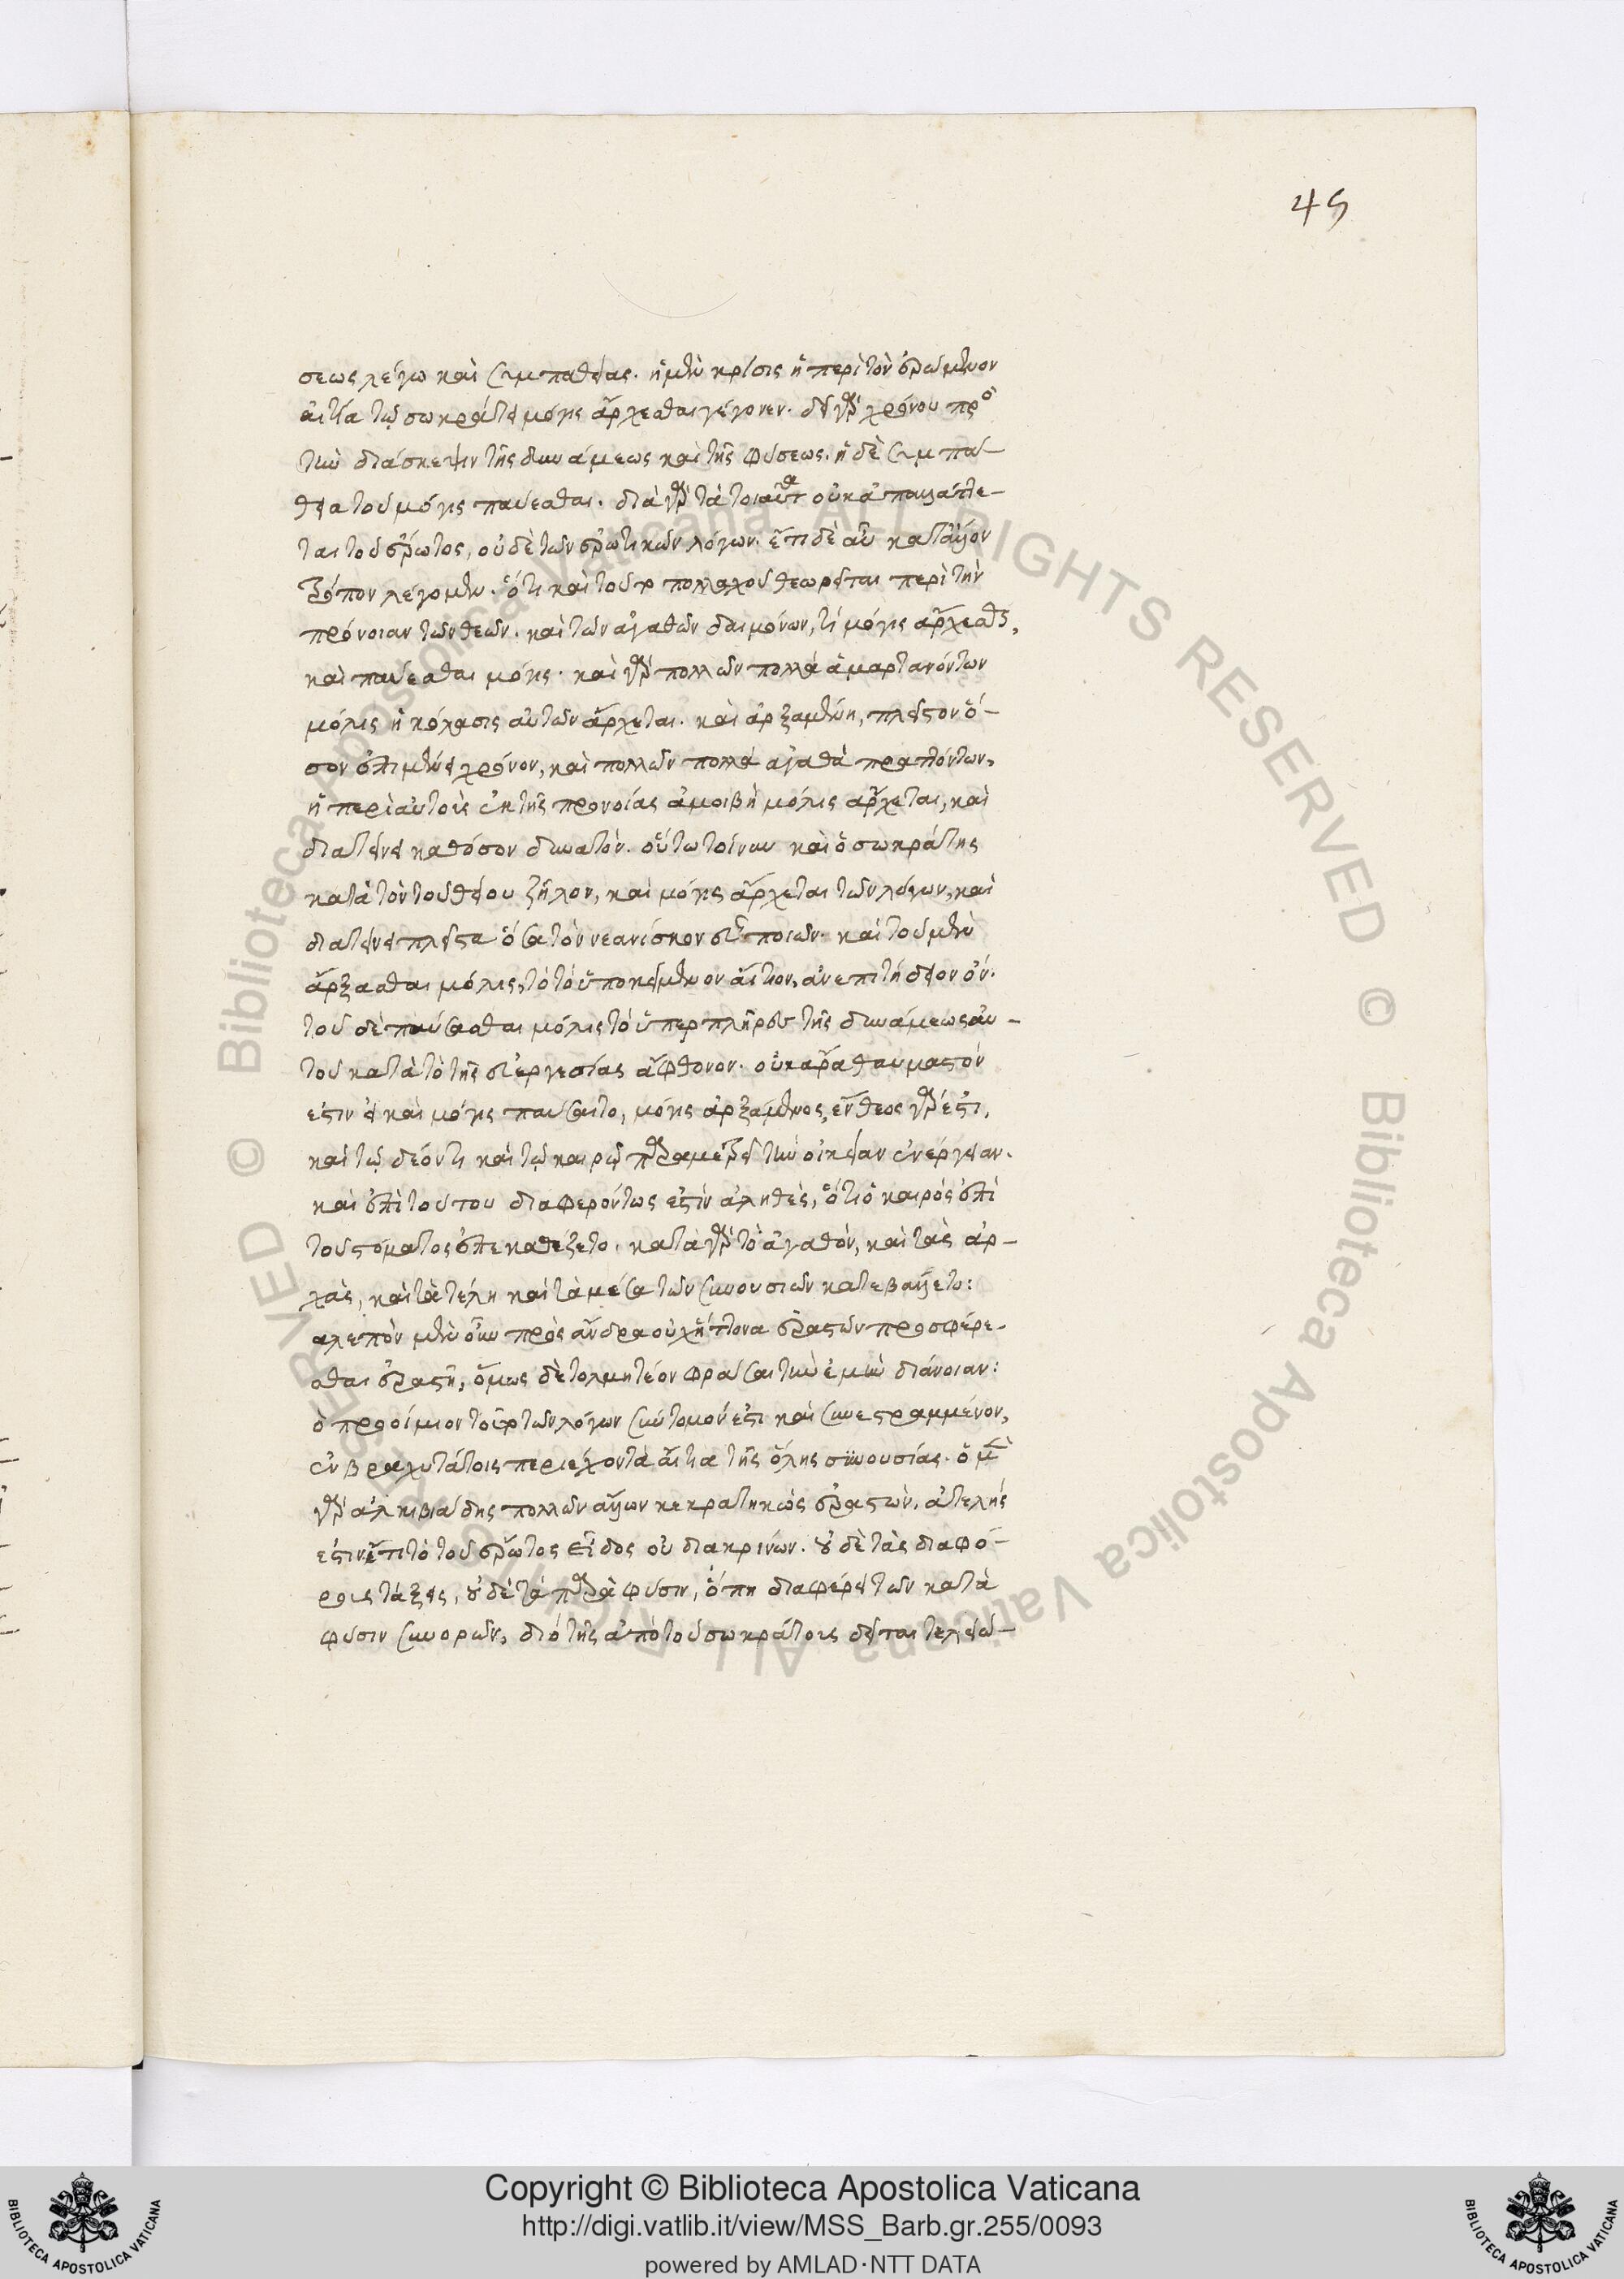 45
σεως λέγω καὶ συμπαθείας. ἡ μὲν κρίσις ἡ περὶ τὸν ἐρώμενον
αἰτία τῷ σωκράτει μόγις ἄρχεσθαι γέγονεν. δεῖ γὰρ χρόνου πρὸς
τὴν διάσκεψιν τῆς δυνάμεως καὶ τῆς φύσεως. ἡ δὲ συμπά-
θεια τοῦ μόγις παύεσθαι. διὰ γὰρ τὰ τοιαῦτα οὐκ ἀπαλλάττε-
ται τοῦ ἔρωτος, οὐδὲ τῶν ἐρωτικῶν λόγων. ἔτι δὲ αὖ κατ' ἄλλον
τρόπον λέγομεν. ὅτι καὶ τοῦτο πολλαχοῦ θεωρεῖται περὶ τὴν
πρόνοιαν τῶν θεῶν. καὶ τῶν ἀγαθῶν δαιμόνων, τί μόγις ἄρχεσθαι,
καὶ παύεσθαι μόγις. καὶ γὰρ πολλῶν πολλὰ ἁμαρτανόντων
μόλις ἡ κόλασις αὐτῶν ἄρχεται. καὶ ἀρξαμένη, πλεῖστον ὅ-
σον ἐπιμένει χρόνον, καὶ πολλῶν πολλὰ ἀγαθὰ πραττόντων,
ἡ περὶ αὐτοὺς ἐκ τῆς προνοίας ἀμοιβὴ μόλις ἄρχεται, καὶ
διατείνει καθόσον δυνατόν. οὕτω τοίνυν καὶ ὁ σωκράτης
κατὰ τὸν τοῦ θείου ζῆλον, καὶ μόγις ἄρχεται τῶν λόγων, καὶ
διατείνει πλεῖστα ὅσα τὸν νεανίσκον εὖ ποιῶν. καὶ τοῦ μὲν
ἄρξασθαι μόλις, τὸ τὸ ὑποκείμενον αἴτιον, ἀνεπιτήδειον ὄν.
τοῦ δὲ παύσασθαι μόλις τὸ ὑπερπλῆρες τῆς δυνάμεως αὐ-
τοῦ κατὰ τὸ τῆς εὐεργεσίας ἄφθονον. οὐκ ἄρα θαυμαστόν
ἐστιν εἰ καὶ μόγις παύσαιτο, μόγις ἀρξάμενος, ἔνθεος γάρ ἐστι,
καὶ τῷ δέοντι καὶ τῷ καιρῷ παραμετρεῖ τὴν οἰκείαν ἐνέργειαν.
καὶ ἐπὶ τούτου διαφερόντως ἐστὶν ἀληθές, ὅτι ὁ καιρὸς ἐπὶ
τοῦ στόματος ἐπεκαθέζετο. κατὰ γὰρ τὸ ἀγαθόν, καὶ τὰς ἀρ-
χὰς, καὶ τὰ τέλη καὶ τὰ μέσα τῶν συνουσιῶν κατεβάλλετο:
αλεπὸν μὲν οὖν πρὸς ἄνδρα οὐχ ἥττονα ἐραστῶν προσφέρε-
σθαι ἐραστῇ, ὅμως δὲ τολμητέον φράσαι τὴν ἐμὴν διάνοιαν:
ὸ προοίμιον τοῦτο τῶν λόγων σύντομόν ἐστι καὶ συνεστραμμένον,
ἐν βραχυτάτοις περιέχον τὰ αἴτια τῆς ὅλης συνουσίας. ὁ μὲν
γὰρ ἀλκιβιάδης πολλῶν ἄλλων κεκρατηκὼς ἐραστῶν, ἀτελής
ἐστιν ἔτι τὸ τοῦ ἔρωτος εἶδος οὐ διακρίνων. οὐδὲ τὰς διαφό-
ρους τάξεις, οὐδὲ τὰ παρὰ φύσιν, ὅπη διαφέρει τῶν κατὰ
φύσιν συνορῶν, διὸ τῆς ἀπὸ τοῦ σωκράτους δεῖται τελειώ-
Copyright © Biblioteca Apostolica Vaticana
http://digi.vatlib.it/view/MSS_Barb.gr.255/0093
powered by AMLAD·NTT DATA